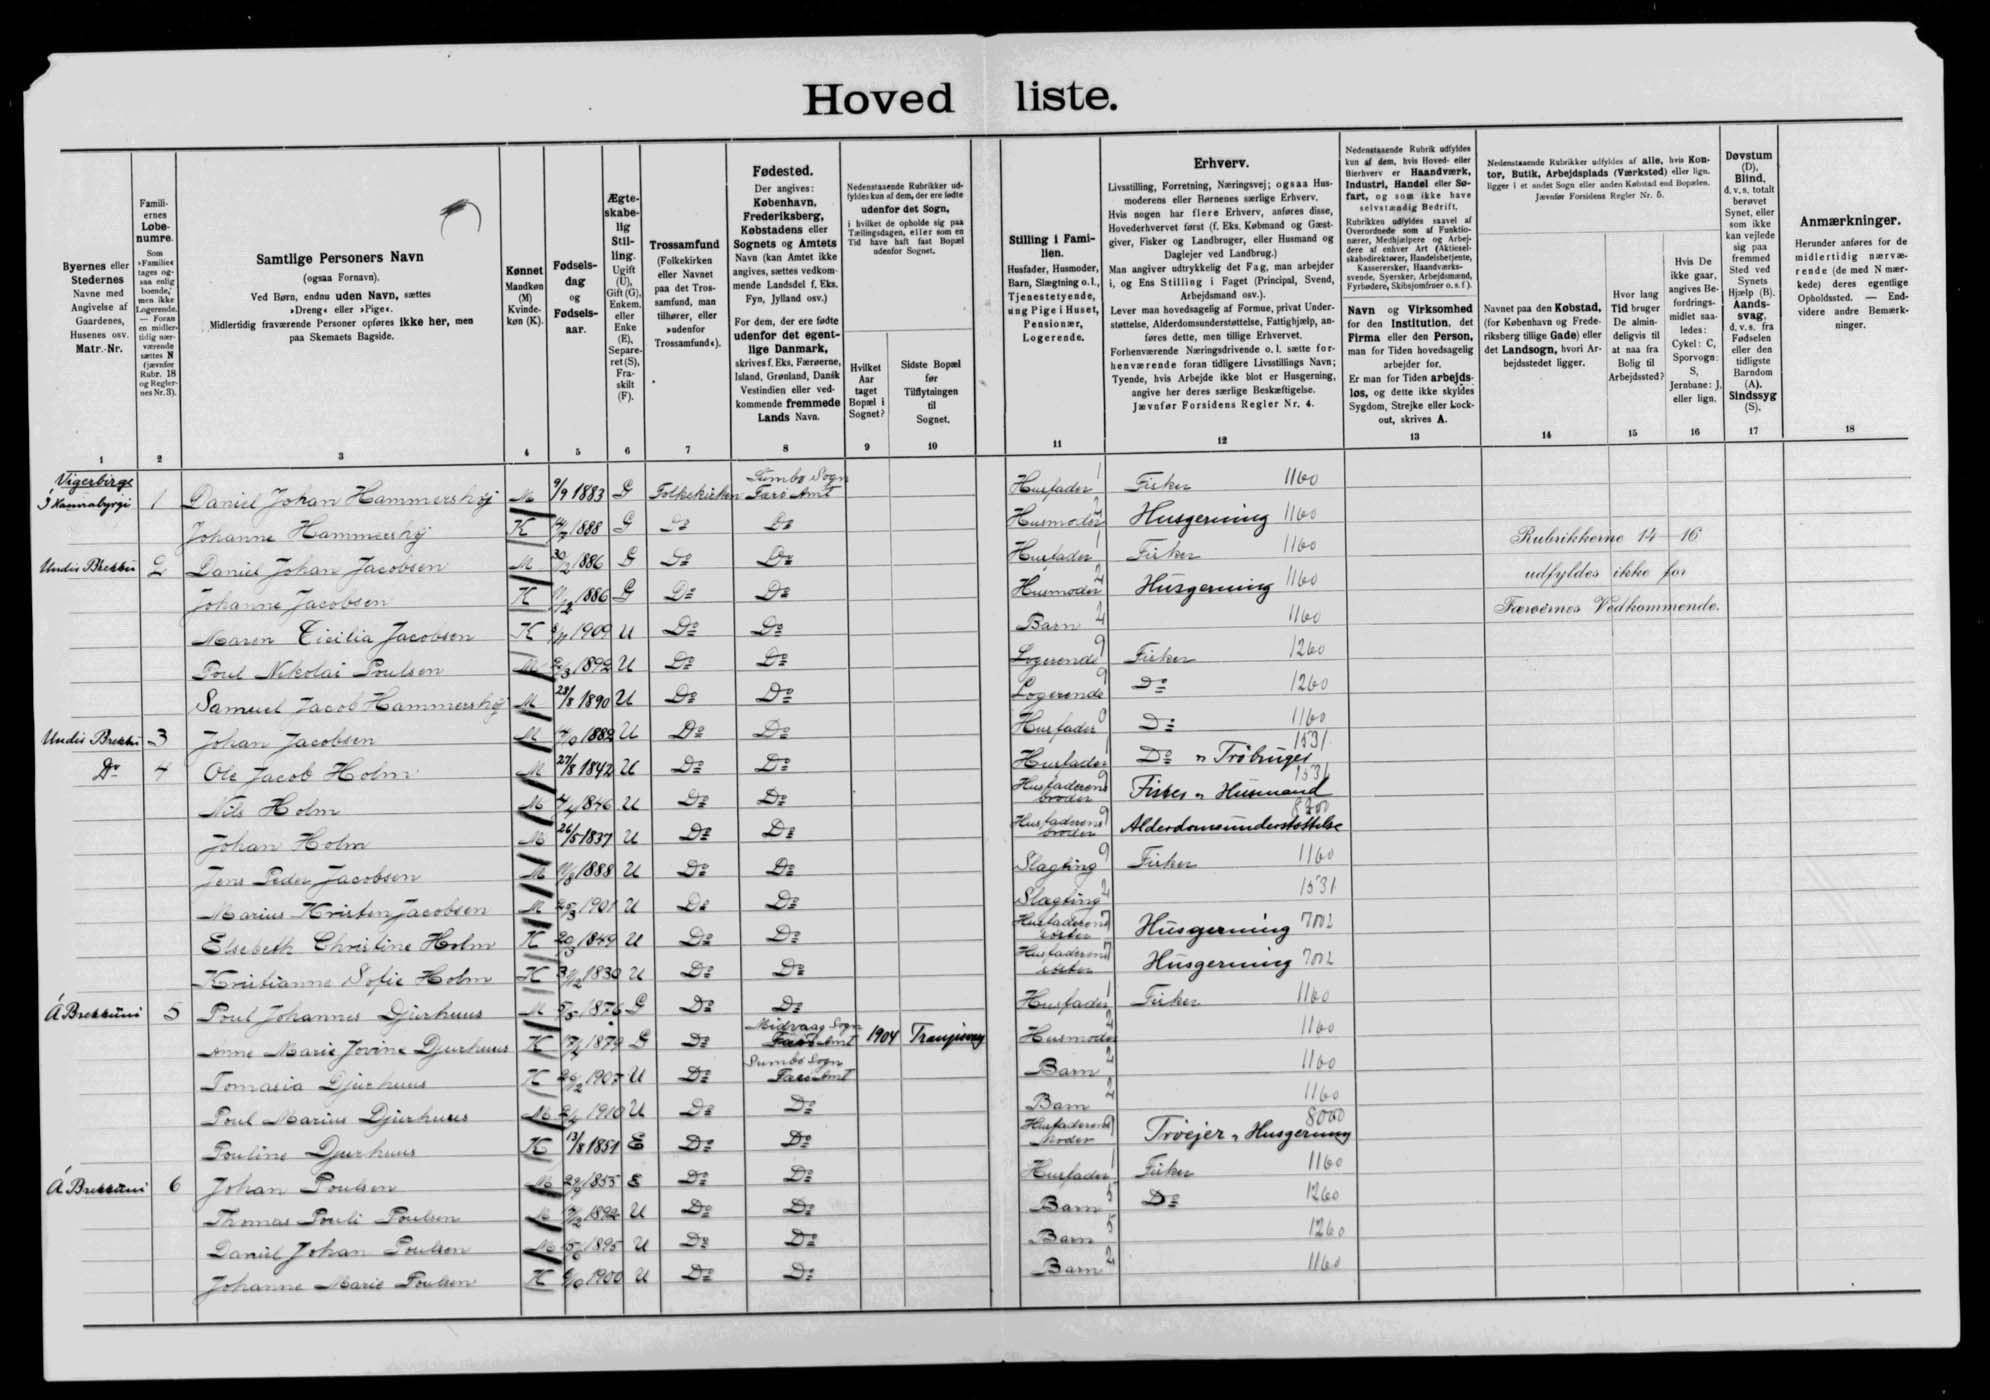 Hoved liste.
Byernes eller
Stedernes
Navne med
Angivelse af
Gaardenes,
Husenes osv.
Matr.-Nr.
1
Famili-
ernes
Lobe-
numre.
Som
»Familie«
tages og-
saa enlig
boende,
men ikke
Logerende.
— Foran
en midler-
tidig nær-
værende
sættes N
(jævnfør
Rubr. 18
og Regler-
nes Nr. 3).
2
Samtlige Personers Navn
(ogsaa Fornavn).
Ved Børn, endnu uden Navn, sættes
»Dreng« eller »Pige«.
Midlertidig fraværende Personer opføres ikke her, men
paa Skemaets Bagside.
3
Kønnet
Mandkøn
(M)
Kvinde-
køn (K).
4
Fødsels-
dag
og
Fødsels-
aar.
5
Ægte-
skabe-
lig
Stil-
ling.
Ugift
(U),
Gift (G),
Enkem.
eller
Enke
(E),
Separe-
ret (S),
Fra-
skilt
(F).
6
Trossamfund
(Folkekirken
eller Navnet
paa det Tros-
samfund, man
tilhører, eller
»udenfor
Trossamfund«).
7
Fødested.
Der angives:
København,
Frederiksberg,
Købstadens eller
Sognets og Amtets
Navn (kan Amtet ikke
angives, sættes vedkom-
mende Landsdel f. Eks.
Fyn, Jylland osv.)
For dem, der ere fødte
udenfor det egent-
lige Danmark,
skrives f. Eks. Færøerne,
Island, Grønland, Dansk
Vestindien eller ved-
kommende fremmede
Lands Navn.
8
Nedenstaaende Rubrikker ud-
fyldes kun af dem, der ere fødte
udenfor det Sogn,
i hvilket de opholde sig paa
Tællingsdagen, eller som en
Tid have haft fast Bopæl
udenfor Sognet.
Hvilket
Aar
taget
Bopæl i
Sognet?
9
Sidste Bopæl
før
Tilflytningen
til
Sognet.
10
Stilling i Fami-
lien.
Husfader, Husmoder,
Barn, Slægtning o.l.,
Tjenestetyende,
ung Pige i Huset,
Pensionær,
Logerende.
11
Erhverv.
Livsstilling, Forretning, Næringsvej; ogsaa Hus-
moderens eller Børnenes særlige Erhverv.
Hvis nogen har flere Erhverv, anføres disse,
Hovederhvervet først (f. Eks. Købmand og Gæst-
giver, Fisker og Landbruger, eller Husmand og
Daglejer ved Landbrug.)
Man angiver udtrykkelig det Fag, man arbejder
i, og Ens Stilling i Faget (Principal, Svend,
Arbejdsmand osv.).
Lever man hovedsagelig af Formue, privat Under-
støttelse, Alderdomsunderstøttelse, Fattighjælp, an-
føres dette, men tillige Erhvervet.
Forhenværende Næringsdrivende o. l. sætte for-
henværende foran tidligere Livsstillings Navn;
Tyende, hvis Arbejde ikke blot er Husgerning,
angive her deres særlige Beskæftigelse.
Jævnfør Forsidens Regler Nr. 4.
12
Nedenstaaende Rubrik udfyldes
kun af dem, hvis Hoved- eller
Bierhverv er Haandværk,
Industri, Handel eller Sø-
fart, og som ikke have
selvstændig Bedrift.
Rubrikken udfyldes saavel af
Overordnede som af Funktio-
nærer, Medhjælpere og Arbej-
dere af enhver Art (Aktiesel-
skabsdirektører, Handelsbetjente,
Kasserersker, Haandværks-
svende, Syersker, Arbejdsmænd,
Fyrbødere, Skibsjomfruer o. s. f.).
Navn og Virksomhed
for den Institution, det
Firma eller den Person,
man for Tiden hovedsagelig
arbejder for.
Er man for Tiden arbejds-
løs, og dette ikke skyldes
Sygdom, Strejke eller Lock-
out, skrives A.
13
Nedenstaaende Rubrikker udfyldes af alle, hvis Kon-
tor, Butik, Arbejdsplads (Værksted) eller lign.
ligger i et andet Sogn eller anden Købstad end Bopælen.
Jævnfør Forsidens Regler Nr. 5.
Navnet paa den Købstad,
(for København og Frede-
riksberg tillige Gade) eller
det Landsogn, hvori Ar-
bejdsstedet ligger.
14
Hvor lang
Tid bruger
De almin-
deligvis til
at naa fra
Bolig til
Arbejdssted?
15
Hvis De
ikke gaar,
angives Be-
fordrings-
midlet saa-
ledes:
Cykel: C,
Sporvogn:
S,
Jernbane: J,
eller lign.
16
Døvstum
(D).
Blind,
d. v. s. totalt
berøvet
Synet, eller
som ikke
kan vejlede
sig paa
fremmed
Sted ved
Synets
Hjælp (B).
Aands-
svag,
d. v. s. fra
Fødselen
eller den
tidligste
Barndom
(A).
Sindssyg
(S).
17
Anmærkninger.
Herunder anføres for de
midlertidig nærvæ-
rende (de med N mær-
kede) deres egentlige
Opholdssted. — End-
videre andre Bemærk-
ninger.
18
Vigerbirge
Í Kannabyrgi 1 Daniel Johan Hammershøj M 9/9 1883 G Folkekirken Sumbø Sogn Færø Amt Husfader 1 Fisker 1160
Johanne Hammershøj K 1888 G Do Do Husmoder 2 Husgerning 1160
Rubrikkerne 14-16
udfyldes ikke for
Færøernes Vedkommende.
Undir Brekku 2 Daniel Johan Jacobsen M 30/2 1886 G Do Do Husfader 1 Fisker 1160
Johanne Jacobsen K 1886 G Do Do Husmoder 2 Husgerning 1160
Maren Cicilia Jacobsen K 1909 U Do Do Barn 2 1160
Poul Nikolai Poulsen M 1892 U Do Do Logerende 9 Fisker 1260
Samuel Jacob Hammershøj M 28/8 1890 U Do Do Logerende 9 Do 1260
Undir Brekku 3 Johan Jacobsen M 1882 U Do Do Husfader 0 Do 1160
Do 4 Ole Jacob Holm M 27/8 1842 U Do Do Husfader 1 Do 1531
Nils Holm M 1846 U Do Do Husfaderens broder 9 Fisker " Husmand 1531
Johan Holm M 26/5 1837 U Do Do Husfaderens broder 9 Alderdomsunderstøttelse 8200
Jens Peder Jacobsen M 1888 U Do Do Slagting 9 Fisker 1160
Marius Kristen Jacobsen M 1901 U Do Do Slagting 2 1531
Elsebeth Christine Holm K 20/3 1849 U Do Do Husfaderens 7 Husgerning 7002
Kristianne Sofie Holm K 1830 U Do Do Husfaderens 7 Husgerning 7002
Á Brekkuni 5 Poul Johannes Djurhuus M 1876 G Do Do Husfader 1 Fisker 1160
Anne Marie Jovine Djurhuus K 1879 G Do Midvaag Sogn Færø Amt 1904 Trangisvaag Husmoder 2 1160
Tomasia Djurhuus K 1907 U Do Sumbø Sogn Færø Amt Barn 2 1160
Poul Marius Djurhuus M 1910 U Do Do Barn 2 1160
Pouline Djurhuus K 13/8 1851 E Do Do Husfaderens Moder Husgerning 8000
Á Brekkuni 6 Johan Poulsen M 1855 E Do Do Husfader 1 Fisker 1160
Thomas Pouli Poulsen M 1892 U Do Do Barn 5 Do 1260
Daniel Johan Poulsen M 1895 U Do Do Barn 5 1260
Johanne Marie Poulsen K 1900 U Do Do Barn 2 1160